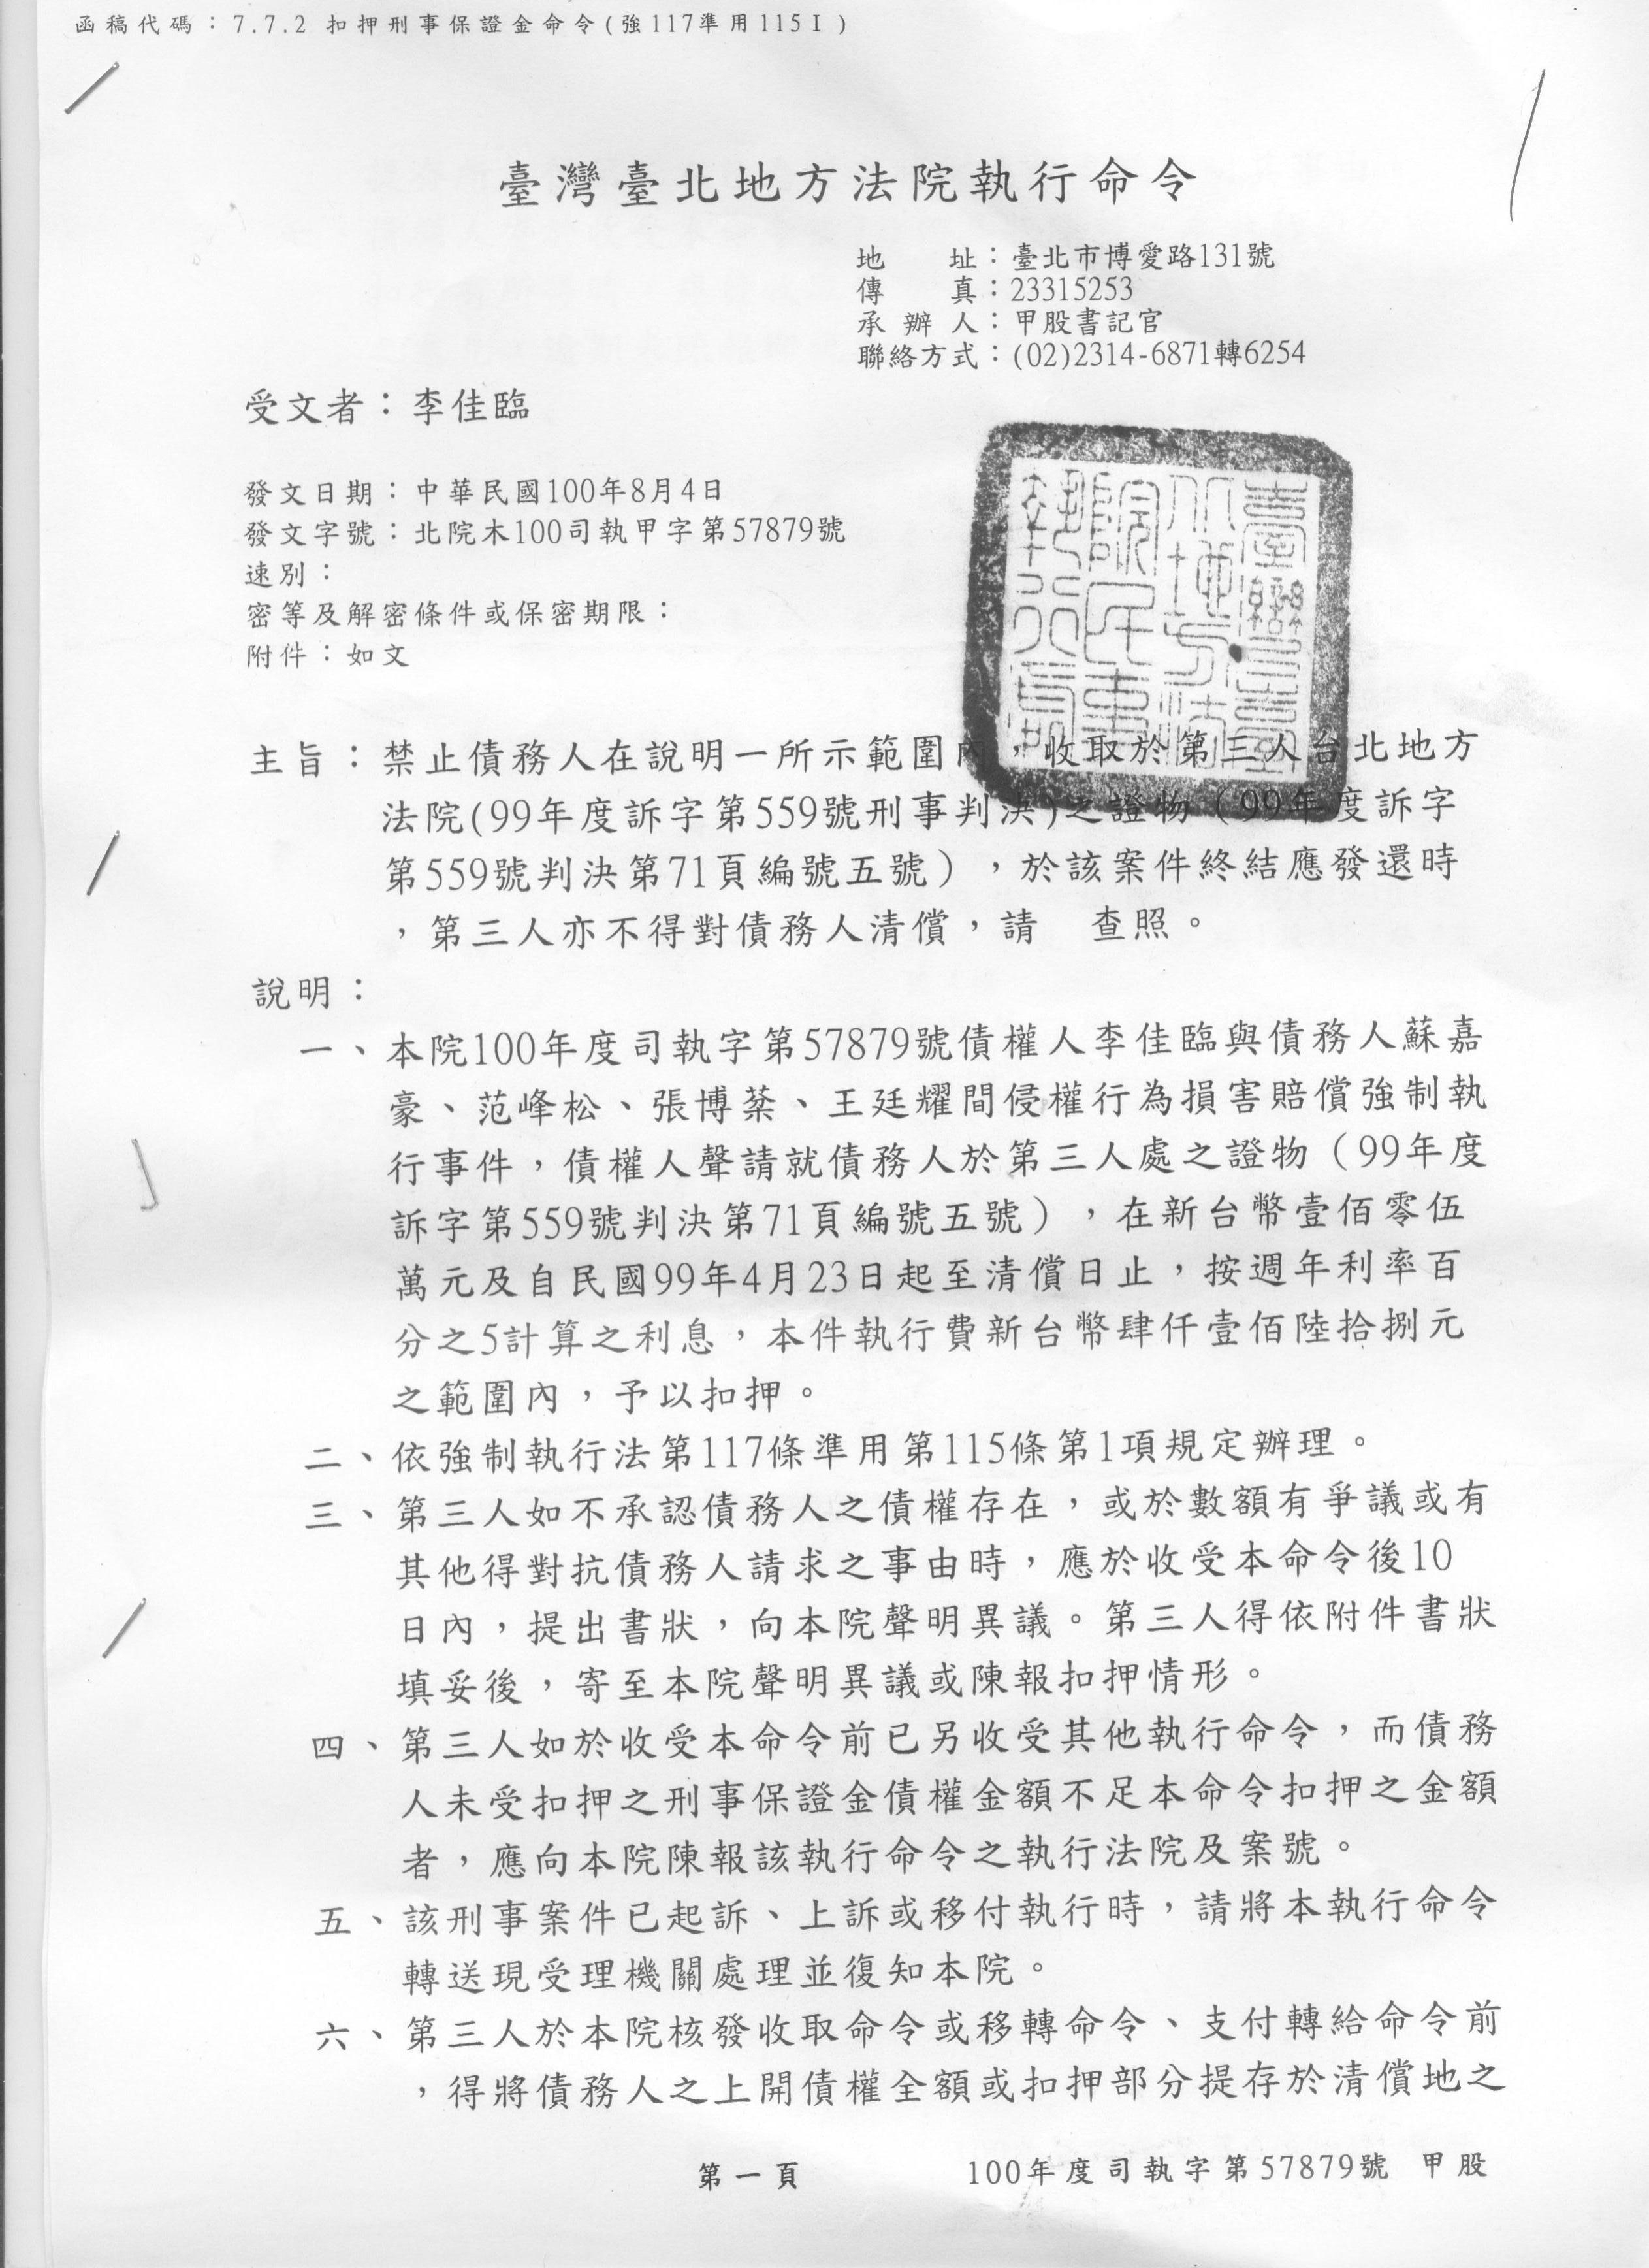 函稿代碼：7.7.2 扣押刑事保證金命令(強117準用115I)
臺灣臺北地方法院執行命令
地　　址：臺北市博愛路131號
傳　　真：23315253
承 辦 人：甲股書記官
聯絡方式：(02)2314-6871轉6254
受文者：李佳臨
發文日期：中華民國100年8月4日
發文字號：北院木100司執甲字第57879號
速別：
密等及解密條件或保密期限：
附件：如文
臺灣臺北地方法院民事執行處
主旨：禁止債務人在說明一所示範圍內，收取於第三人台北地方
法院(99年度訴字第559號刑事判決)之證物（99年度訴字
第559號判決第71頁編號五號），於該案件終結應發還時
，第三人亦不得對債務人清償，請　查照。
說明：
一、本院100年度司執字第57879號債權人李佳臨與債務人蘇嘉
豪、范峰松、張博棻、王廷耀間侵權行為損害賠償強制執
行事件，債權人聲請就債務人於第三人處之證物（99年度
訴字第559號判決第71頁編號五號），在新台幣壹佰零伍
萬元及自民國99年4月23日起至清償日止，按週年利率百
分之5計算之利息，本件執行費新台幣肆仟壹佰陸拾捌元
之範圍內，予以扣押。
二、依強制執行法第117條準用第115條第1項規定辦理。
三、第三人如不承認債務人之債權存在，或於數額有爭議或有
其他得對抗債務人請求之事由時，應於收受本命令後10
日內，提出書狀，向本院聲明異議。第三人得依附件書狀
填妥後，寄至本院聲明異議或陳報扣押情形。
四、第三人如於收受本命令前已另收受其他執行命令，而債務
人未受扣押之刑事保證金債權金額不足本命令扣押之金額
者，應向本院陳報該執行命令之執行法院及案號。
五、該刑事案件已起訴、上訴或移付執行時，請將本執行命令
轉送現受理機關處理並復知本院。
六、第三人於本院核發收取命令或移轉命令、支付轉給命令前
，得將債務人之上開債權全額或扣押部分提存於清償地之
第一頁
100年度司執字第57879號 甲股